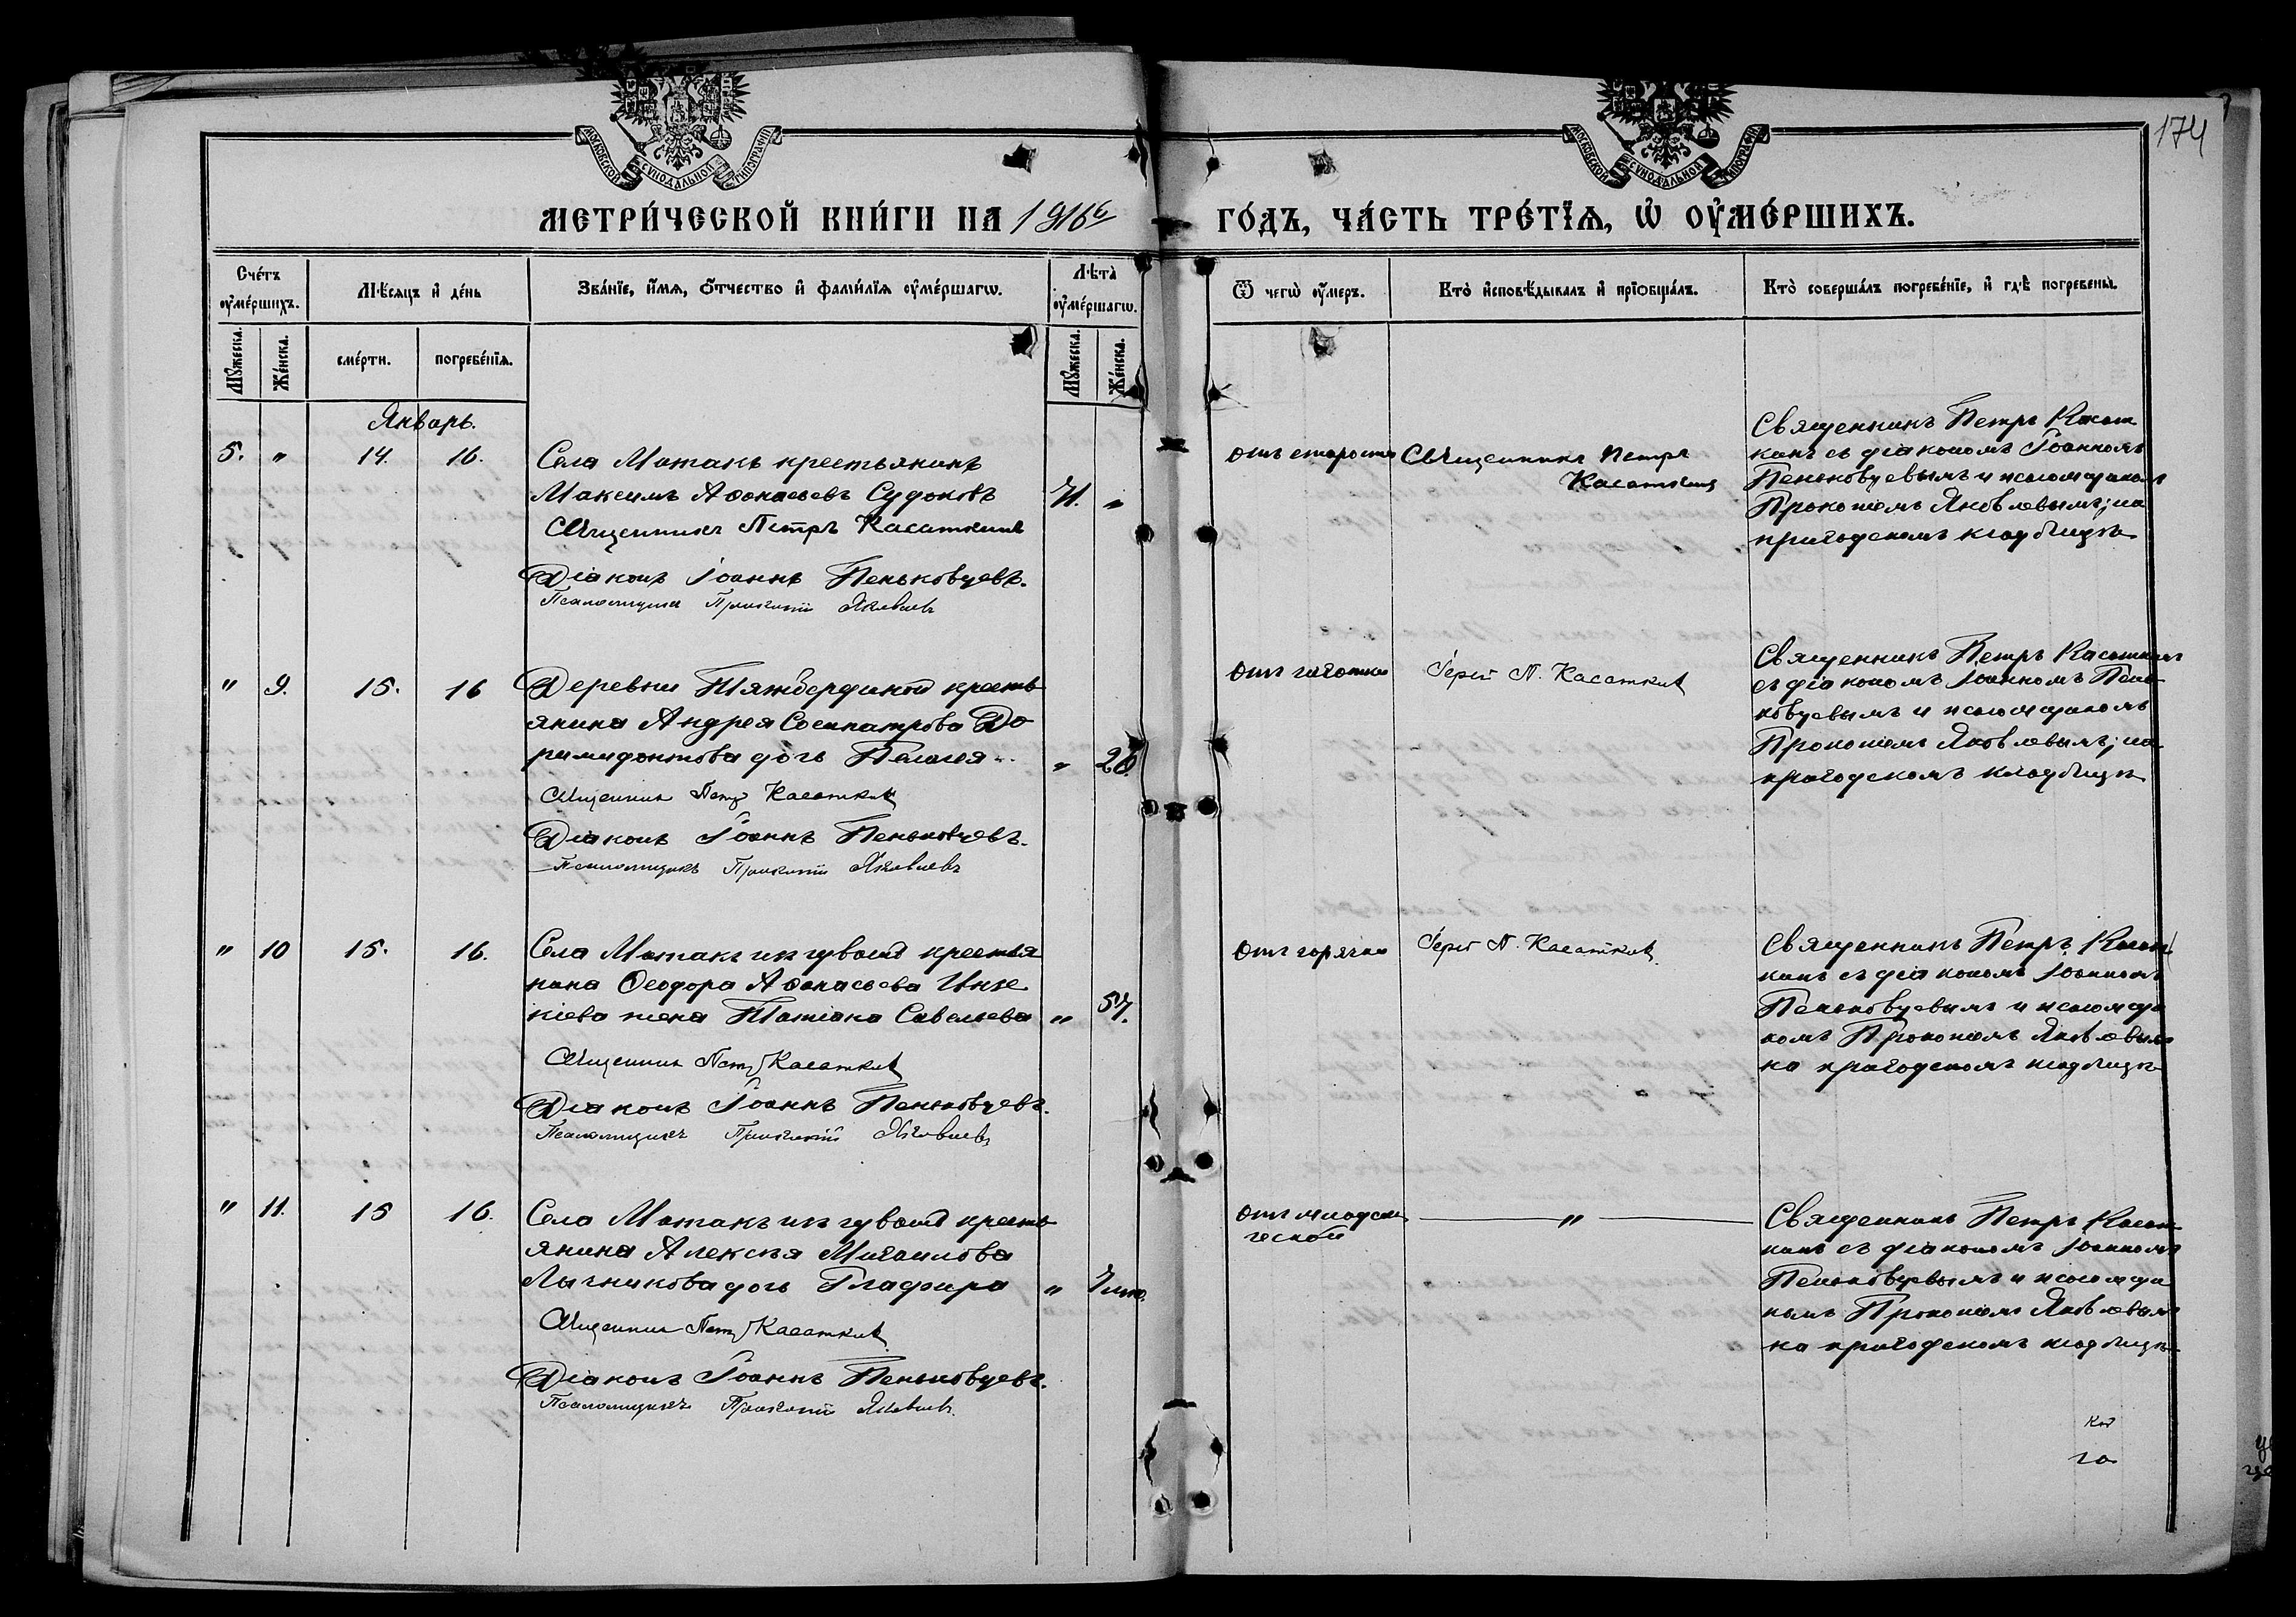 МОСКОВСКОЙ СѴНОДАЛЬНОЙ ТИПОГРАФІИ
МОСКОВСКОЙ СѴНОДАЛЬНОЙ ТИПОГРАФІИ
174
МЕТРИ́ЧЕСКОЙ КНИ́ГИ НА 1916 ГО́ДЪ, ЧА́СТЬ ТРЕ́ТЇѦ, Ѡ҆ ОУ҆МЕ́РШИХЪ.
Сче́тъ оу҆ме́ршихъ.
Мѣ́сяцъ и҆ де́нь
Зва́нїе, и҆́мя, ѻ҆́тчество и҆ фами́лїя оу҆ме́ршагѡ.
Лѣ́та оу҆ме́ршагѡ.
Ѿ чегѡ̀ оу҆́меръ.
Кто̀ и҆сповѣ́дывалъ и҆ прїѡбща́лъ.
Кто̀ соверша́лъ погребе́нїе, и҆ гдѣ̀ погребены̀.
Мꙋ́жеска.
Же́нска.
сме́рти.
погребе́нїя.
Мꙋ́жеска.
Же́нска.
Январь.
5. " 14. 16.
Села Матакъ крестьянинъ
Максимъ Аѳанасьевъ Судоковъ
71. "
Священникъ Петръ Касаткинъ
Діаконъ Іоаннъ Пеньковцевъ.
Псаломщикъ Прокопій Яковлевъ
отъ старости
Священникъ Петръ
Касаткинъ
Священникъ Петръ Касат
кинъ съ діакономъ Іоанномъ
Пеньковцевымъ и псаломщикомъ
Прокопіемъ Яковлевымъ; на
приходскомъ кладбищѣ
" 9. 15. 16
Деревни Тяжбердиной кресть
янина Андрея Сосипатрова До
римидонтова дочь Пелагея
" 26.
Священникъ Петръ Касаткинъ
Діаконъ Іоаннъ Пеньковцевъ.
Псаломщикъ Прокопій Яковлевъ
отъ чахотки
Іерей П. Касаткинъ
Священникъ Петръ Касаткинъ
съ діакономъ Іоанномъ Пень
ковцевымъ и псаломщикомъ
Прокопіемъ Яковлевымъ; на
приходскомъ кладбищѣ
" 10 15. 16.
Села Матакъ крестья
нина Ѳеодора Аѳанасьева
жена Татіана Савельева
" 57.
Священникъ Петръ Касаткинъ
Діаконъ Іоаннъ Пеньковцевъ.
Псаломщикъ Прокопій Яковлевъ
отъ горячки
Іерей П. Касаткинъ
Священникъ Петръ Касат
кинъ съ діакономъ Іоанномъ
Пеньковцевымъ и псаломщи
комъ Прокопіемъ Яковлевымъ
на приходскомъ кладбищѣ
" 11. 15 16.
Села Матакъ кресть
янина Алексѣя Михаилова
Лычникова дочь Глафира
"
Священникъ Петръ Касаткинъ
Діаконъ Іоаннъ Пеньковцевъ.
Псаломщикъ Прокопій Яковлевъ
отъ младен
ческой
"
Священникъ Петръ Касат
кинъ съ діакономъ Іоанномъ
Пеньковцевымъ и псаломщи
комъ Прокопіемъ Яковлевымъ
на приходскомъ кладбищѣ